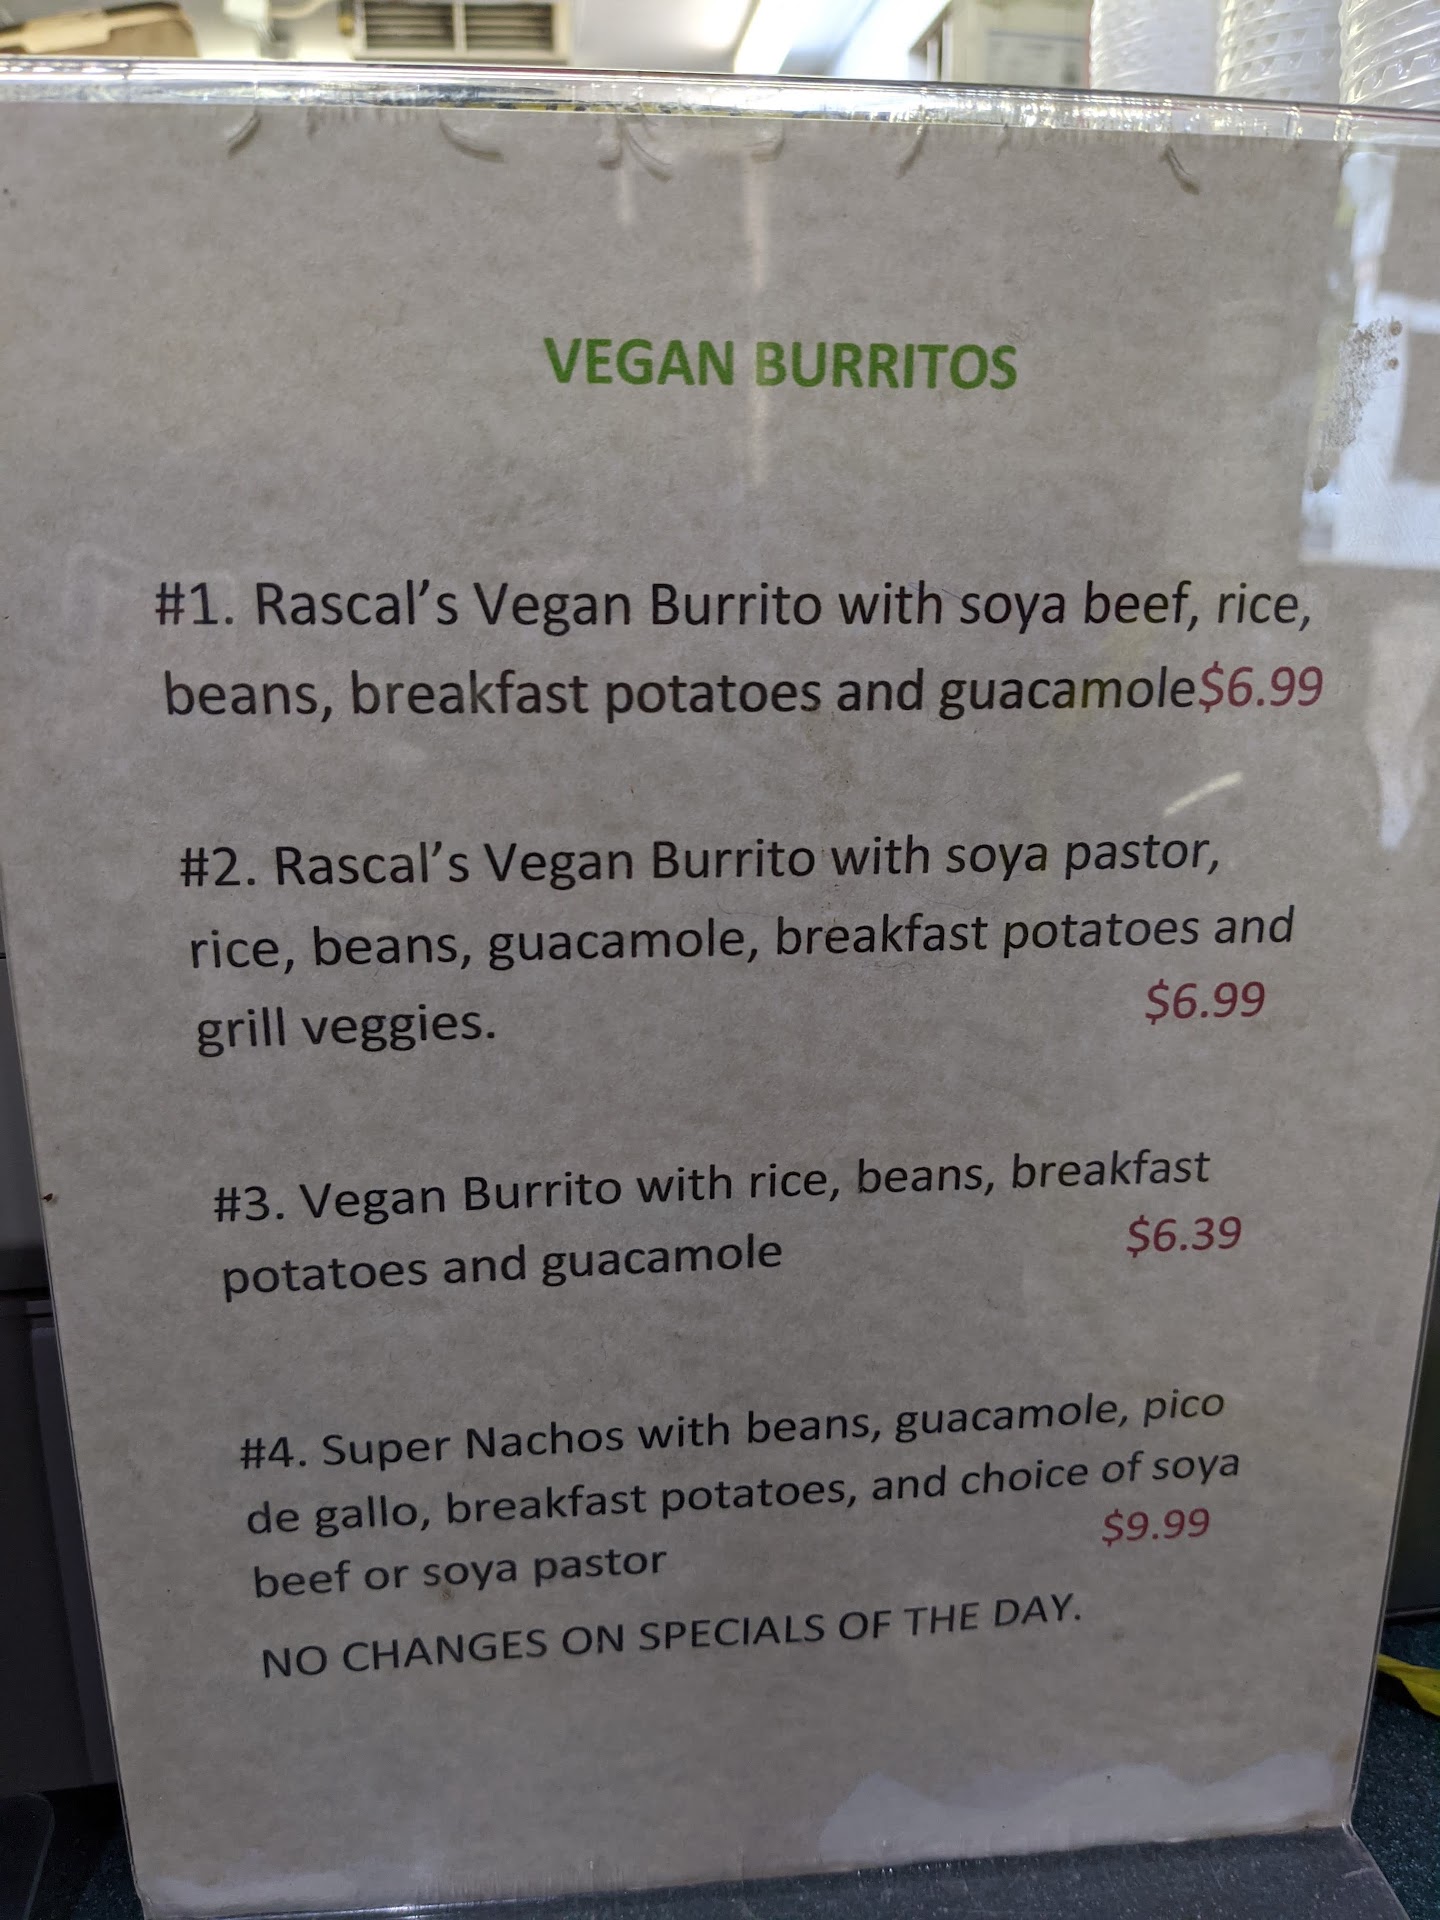 VEGAN BURRITOS
#1. Rascal’s Vegan Burrito with soya beef, rice,
beans, breakfast potatoes and guacamole$6.99
#2. Rascal’s Vegan Burrito with soya pastor,
rice, beans, guacamole, breakfast potatoes and
grill veggies. $6.99
#3. Vegan Burrito with rice, beans, breakfast
potatoes and guacamole $6.39
#4. Super Nachos with beans, guacamole, pico
de gallo, breakfast potatoes, and choice of soya
beef or soya pastor $9.99
NO CHANGES ON SPECIALS OF THE DAY.